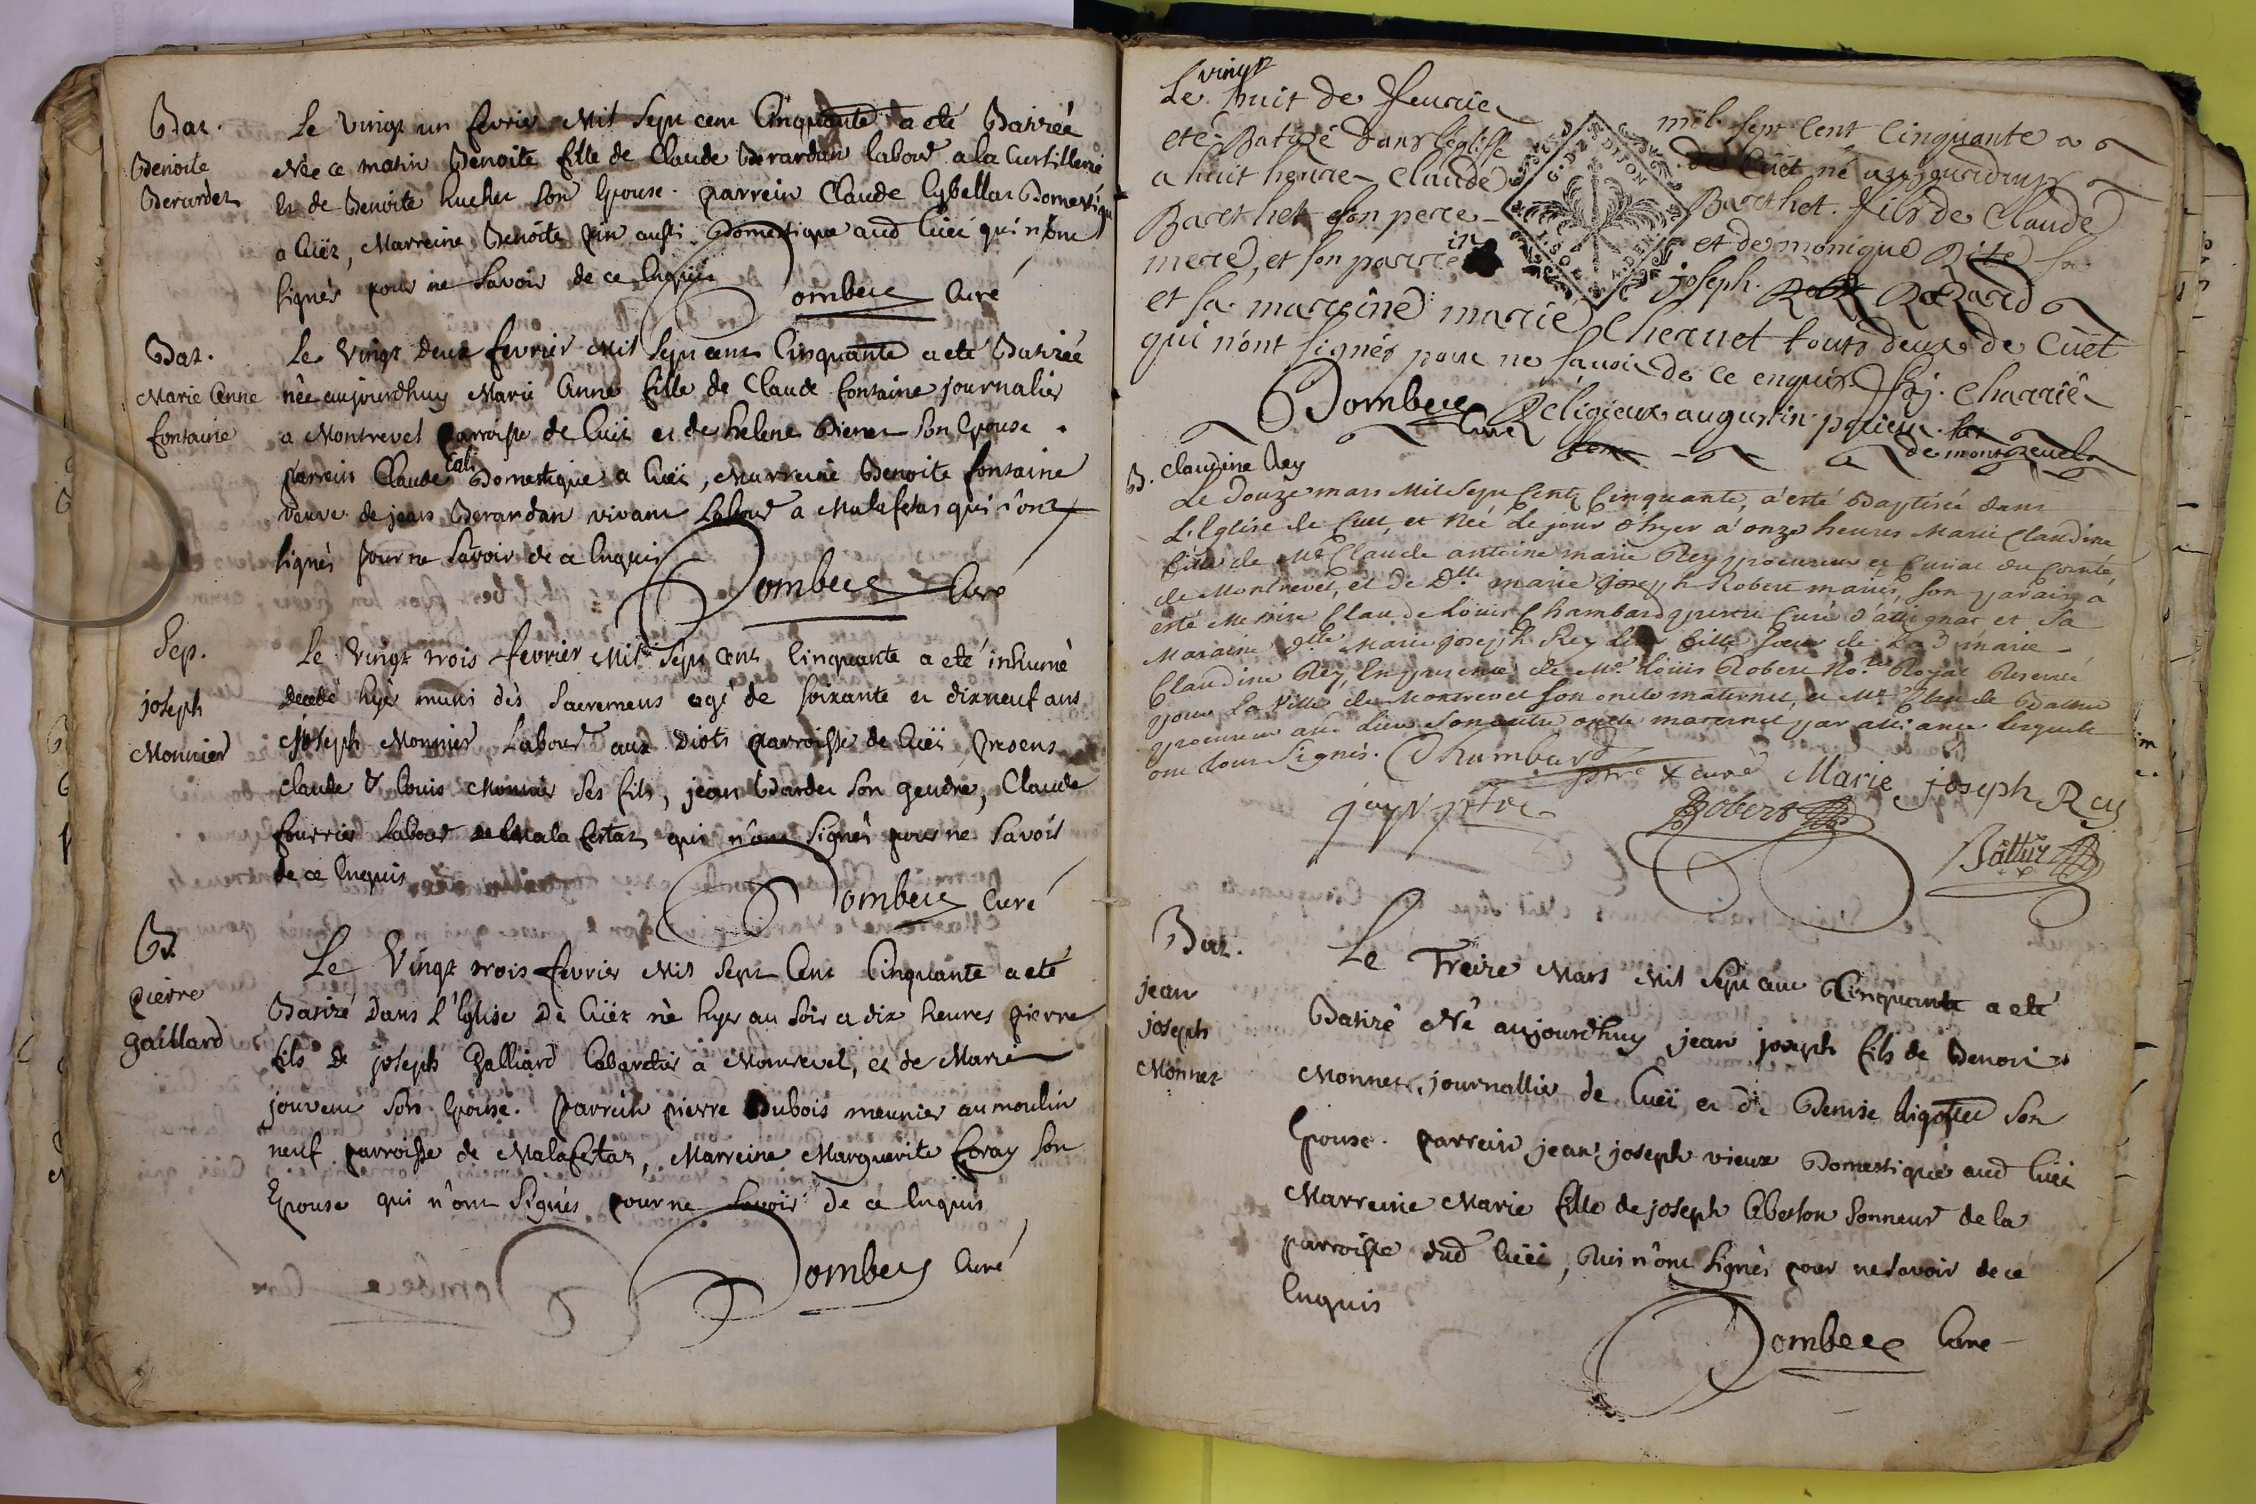 Bat.
Benoite
Berardet
Le vingt un fevrier Mil sept cent Cinquante a eté Batizée
Née ce matin Benoite fille de Claude Berardan labour a la Curtillerie
Et de Benoite huchet son Epouse. parrein Claude Domestique
a Cuët, Marreine Benoite aussi Domestique aud Cuët qui n'ont
signés pour ne savoir de ce Enquis
Dombeis Curé
Bat.
Marie Anne
fontaine
Le Vingt Deux fevrier Mil Sept cent Cinquante a eté Batizée
née aujourdhuy Marie Anne fille de Claude fontaine journalier
a Montrevel parroisse de Cuët et de helene Vienet son Epouse.
parrein Claude Domestique a Cuët, Marreine Benoite fontaine
veuve de jean Berardan vivant Labour a Malafretas qui n'ont
signés pour ne Savoir de ce Enquis
Dombeis Curé
Sep.
joseph
Monnier
Le Vingt trois fevrier Mil Sept cent Cinquante a eté inhumé
decedé hyer muni des Sacremens agé de soixante et dixneuf ans
joseph Monnier Labour aux Diots parroisse de Cuët, presens
Claude & Louis Monnier ses fils, jean Bardet son gendre, Claude
fourrier Labour de Malafertaz qui n'ont signés pour ne savoir
de ce Enquis
Dombeis Curé
B.
pierre
gaillard
Le Vingt trois fevrier Mil Sept Cent Cinquante a eté
Batizé Dans L'Eglise De Cuët né hyer au soir a dix heures pierre
fils de joseph Galliard Cabaretier à Montrevel, et de Marie
jouvent son Epouse. parrein pierre Dubois meunier au moulin
neuf parroisse de Malafertaz, Marreine Marguerite foray son
Epouse qui n'ont Signés pour ne Savoir de ce Enquis
Dombeis Curé
Le vingt huit de feurier mil sept cent cinquante a
eté Batizé dans l'eglisse de Cuët né aujourdhuy
a huit heure Claude Barethet fils de Claude
Barethet son perre et de monique sa
mere, et son parrein joseph Ravard
et sa marreine marie Cheruet touts deux de Cuët
qui n'ont signés pour ne savoir de ce enquis. f. j. Charrié
Dombeis Curé Religieux augustin prieur
de montrevel
GEN DE DIJON
B. Claudine Rey
Le Douze mars Mil Sept Cents Cinquante, a esté Baptisée dans
L'Eglise de Cuet, et Née Le jour d'hyer a onze heures Marie Claudine
fille de Me Claude antoine marie Rey procureur et Curial du Comté
de Montrevel, et de Dlle marie joseph Robert mariés, son parain a
esté Messire Claude Louis Chambard prestre Curé d'attignat et sa
Maraine Dlle Marie joseph Rey fille soeur de lad marie
Claudine Rey, En presence de Me Louis Robert Nore Royal Reservé
pour La Ville de Montrevel son oncle maternel, et Me de Battur
procureur aud lieu son autre oncle maternel par alliance lesquels
ont tous Signés. Chambard
ptre & curé Marie joseph Rey
Robert
Battur
Bat.
jean
joseph
Monnet
Le Treize Mars Mil Sept cent Cinquante a eté
Batizé Né aujourdhuy jean joseph fils de Benoit
Monnet, journallier de Cuët et de Denise ligottet son
Epouse. parrein jean joseph vieux Domestique aud Cuët
Marreine Marie fille de joseph Sonneur de la
parroisse dud Cuët, Qui n'ont Signés pour ne savoir de ce
Enquis
Dombeis Curé